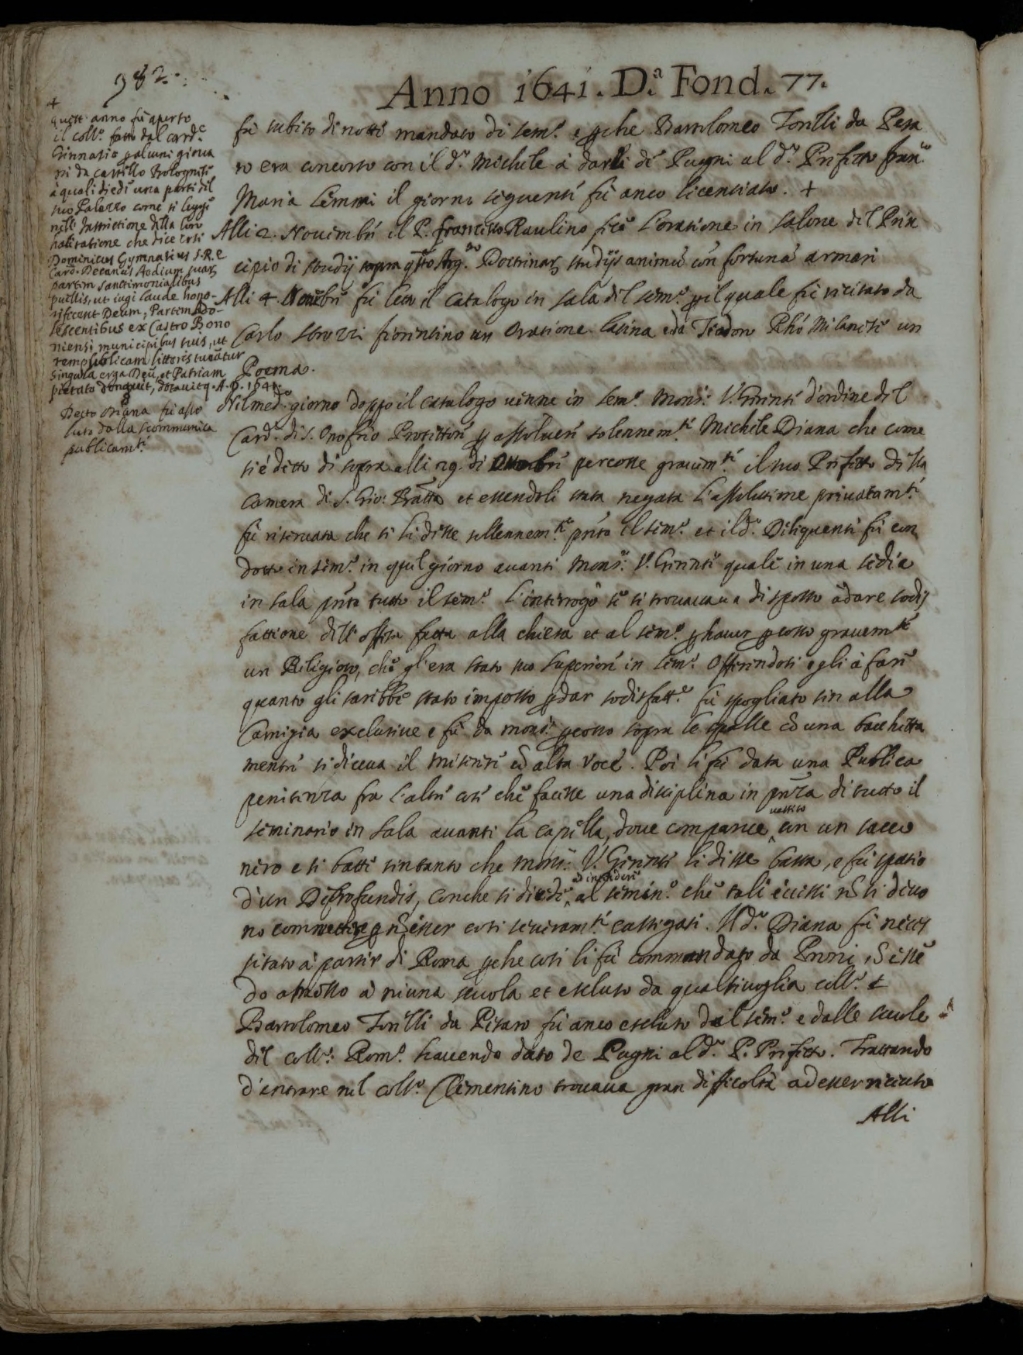 982.
Anno 1641. D.ª Fond. 77.
+
Quest'anno fù aperto
il coll.º fatto dal Card.e
Ginnasio p alcuni giova
ni da castello Bolognese
a quali diede una parte del
suo Palazzo come si legge
nell'Inscrittione della loro
habitatione che dice così
Dominicus Gymnasius S.R.E
Card. Decanus Aedium suar.
partem Sanctimonialibus
puellis, ut iugi laude hono-
rificent Deum, Partem Ado-
lescentibus ex Castro Bono
niensi municipibus suis, ut
rempublicam litteris
singula erga Deū, et Patriam
pietate A.D. 1641
Detto Diana fu asso
luto dalla scommunica
publicam.te
fu subito di notte mandato di sem.º e pche Bartolomeo Torelli da Pesa
ro era concorso con il d.º Michele à darli de Pugni al d.º Prefetto fran.co
Maria Lemmi il giorno seguente fù anco licentiato. +
Alli 2. Novembre il P. Francesco Raulino fece l'oratione in salone del Prin
cipio di studij sopra q̃sto Arg.to Doctrinaẽ studijs animũ con fortunã armari
Alli 4. Nouebre fù letto il Catalogo in sala del sem.º p il quale fù recitato da
Carlo Strozzi fiorentino un Oratione latina e da Teodoro Rhò Milanese un
Poema.
Nel med.º giorno doppo il catalogo venne in sem.º Mons.r V.Gerente d'ordine del
Card. di S. Onofrio Protettore p assoluere solennem.te Michele Diana che come
si è detto di sopra alli 29. di Ottobre percosse gravem.te il suo Prefetto della
Camera di S. Gio: Batta et essendoli stata negata l'assolutione privatam.te
fù riservata che si li desse sollennem.te pñte il sem.º et il d.º Deliquente fù con
dotto in sem.º in quel giorno avanti Mons.r V.Gerente quale in una sedia
in sala pñte tutto il sem.º l'interrogò se si trovava disposto à dare sodis
fattione dell'offesa fatta alla chiesa et al sem.º p haver pcosso gravem.te
un Religioso, che gl'era stato suo superiore in sem.º Offerendosi egli à fare
quanto gli sarebbe stato imposto p dar sodisfatt.e fù spogliato sin alla
Camigia exclusive e fù da mons.r pcosso sopra le spalle cō una bacchetta
mentre si diceva il Miserere cō alta voce. Poi li fù data una Publica
penitenza fra l'altre cose che facesse una disciplina in pñza di tutto il
seminario in sala avanti la capella, dove comparve vestito con un sacco
nero e si batté sintanto che mons.r V.Gerente li disse basta, e fù spatio
d'un Deprofundis, conche si diede ad intendere al semin.º che tali eccessi nō si devo
no commettere p nō esser così severam.te castigati. Il d.º Diana fù neces
sitato à partir di Roma pche così li fù commandato da Prrñi, nō essē
do ammesso à niuna scuola et escluso da qualsivoglia coll.º +
Bartolomeo Torelli da Pesaro fù anco escluso dal sem.º e dalle scuole
del coll.º Rom.º havendo dato de Pugni al d.º P. Prefetto. Trattando
d'entrare nel coll.º Clementino trovava gran difficoltà ad esser ricevuto
Alli